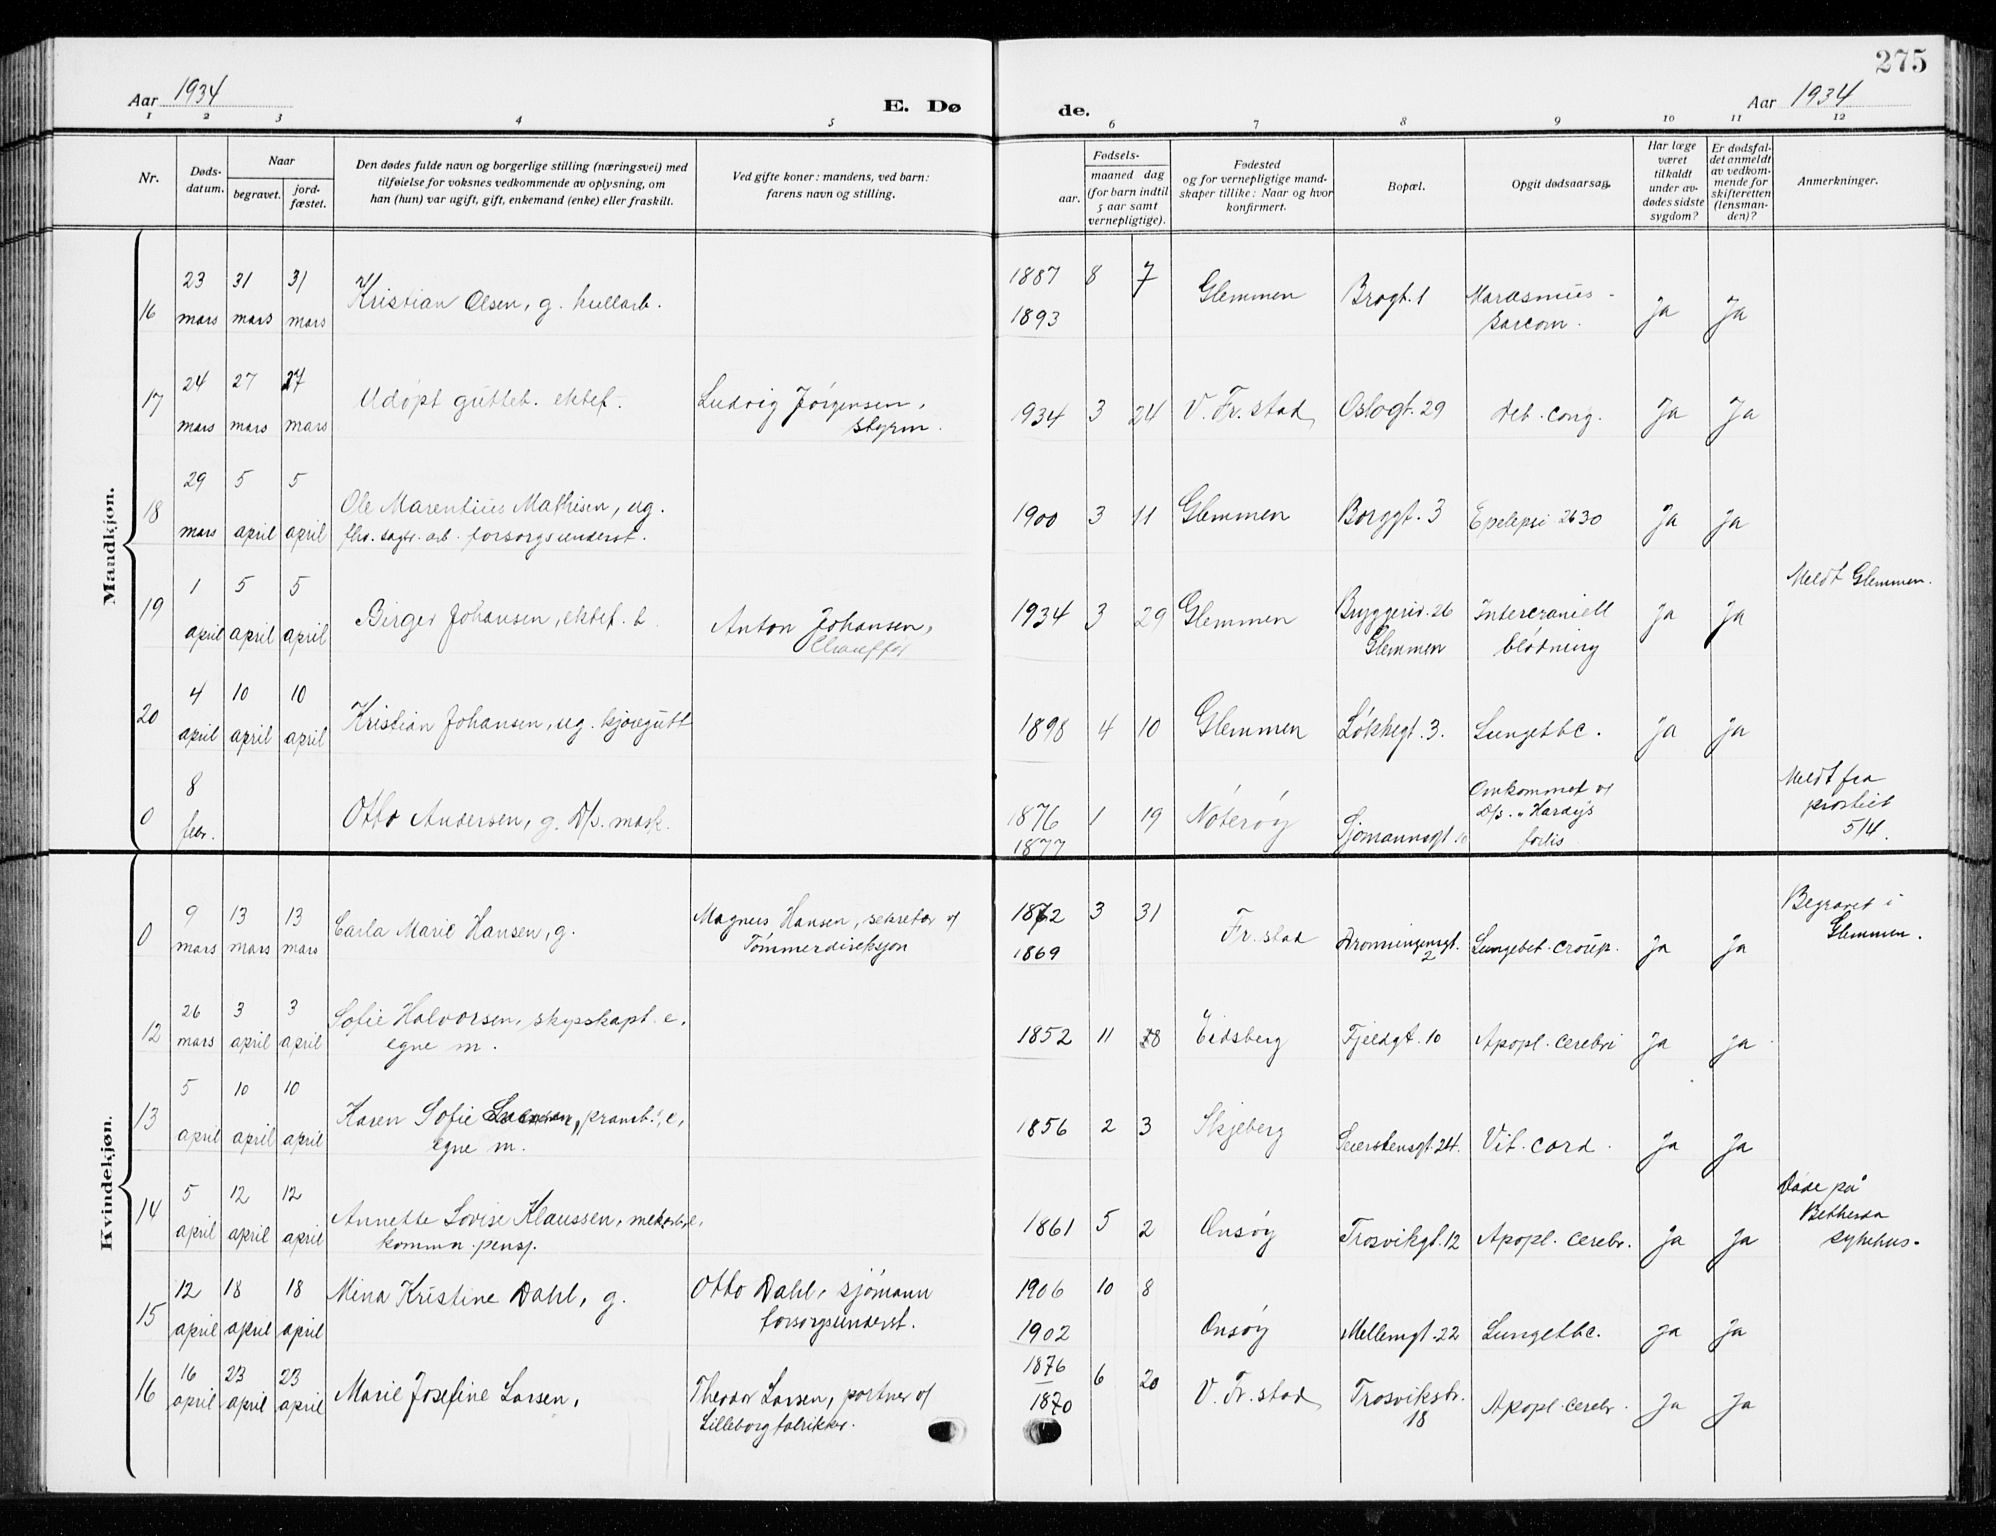 275
Aar 1934
E. Dø
de.
Aar 1934
1 2 3 4 5 6 7 8 9 10 11 12
Nr.
Døds-
datum.
Naar
begravet.
jord-
fæstet.
Den dødes fulde navn og borgerlige stilling (næringsvei) med
tilføielse for voksnes vedkommende av oplysning, om
han (hun) var ugift, gift, enkemand (enke) eller fraskilt.
Ved gifte koner: mandens, ved barn:
farens navn og stilling.
Fødsels-
aar.
maaned dag
(for barn indtil
5 aar samt
vernepligtige).
Fødested
og for vernepligtige mand-
skaper tillike: Naar og hvor
konfirmert.
Bopæl.
Opgit dødsaarsag.
Har læge
været
tilkaldt
under av-
dødes sidste
sygdom?
Er dødsfal-
det anmeldt
av vedkom-
mende for
skifteretten
(lensman-
den)?
Anmerkninger.
Mandkjøn.
16 23 mars 31 mars 31 mars Kristian Olsen, g. hullarb. 1887 8 7 Glemmen Brogt. 1 Marasmus - Ja Ja
1893 Sarcom.
17 24 mars 27 mars 27 mars Udøpt gutteb. ektef. Ludvig Jørgensen, 1934 3 24 V. Fr.stad Oslogt. 29 Deb. cong. Ja Ja
styrm.
18 29 mars 5 april 5 april Ole Marentius Mathisen, ug. 1900 3 11 Glemmen Borggt. 3 Epelepsi 2630 Ja Ja
fhv. sagbr. arb. forsorgsunderst.
19 1 april 5 april 5 april Birger Johansen, ektef. b. Anton Johansen, 1934 3 29 Glemmen Bryggeriv. 26 Intercraniell Ja Ja Meldt Glemmen.
Chauffør Glemmen blødning
20 4 april 10 april 10 april Kristian Johansen, ug. 1898 4 10 Glemmen Løkkegt. 3. Lungetbc. Ja Ja
0 8 febr. Otto Andersen, g. D/s. mask. 1876 1 19 Nøterøy Sjømannsgt. 10 Omkommet Meldt fra
1877 D/s. "Hardy's prostiet
forlis 5/4.
Kvindekjøn.
0 9 mars 13 mars 13 mars Carla Marie Hansen, g. Magnus Hansen, sekretær v/ 1872 3 31 Fr.stad Dronningensgt. Lungebet. croup. Ja Ja Begravet i
Tømmerdireksjon 1869 2 Glemmen.
12 26 mars 3 april 3 april Sofie Halvorsen, skysskapt. e. 1852 11 28 Eidsberg Fjeldgt. 10 Apopl. cerebri Ja Ja
egne m.
13 5 april 10 april 10 april Karen Sofie 1856 2 3 Skjeberg Seierstensgt. 24. Vit. cord. Ja Ja
egne m.
14 5 april 12 april 12 april Annette Lovise Klaussen, 1861 5 2 Onsøy Trosvikgt. 12 Apopl. cerebr. Ja Ja Døde på
komm. pensj. Bethesda
sykehus.
15 12 april 18 april 18 april Mina Kristine Dahl, g. Otto Dahl, sjømann 1906 10 8 Onsøy Mellemgt. 22 Lungetbc. Ja Ja
forsorgsunderst. 1902
16 16 april 23 april 23 april Marie Josefine Larsen, Theodor Larsen, portner v/ 1876 6 20 V. Fr.stad Trosvikstr. Apopl. cerebr. Ja Ja
Lilleborg fabrikker. 1870 18